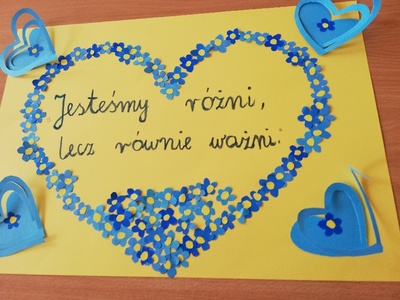 Jesteśmy różni,
lecz równie ważni.